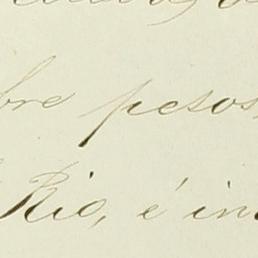 bre pesos
Rio, é in